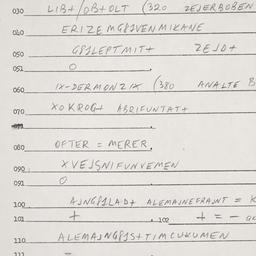 030 LIB+/OB+OLT (320 ZEJERBOBEN
040 ERIZEMGPSVENMIKANE
050 GPSLEPTMIT+ ZEJO+
051 O
060 IX-DERMONZIX (380 ANALTE B
070 XOKROG+ ABRIFUNTAT+
080 OFTER = MERER,
090 XVEJGNIFUNVEMEN
091 O
100 AJNGPSLAD+ ALEMAJNEFRAJNT = K
101 + 102 + = -
110 ALEMAJNGPSS+TIMCUKUMEN
111 -